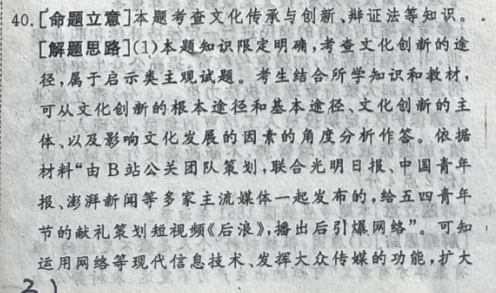 40.[命题立意]本题考查文化传承与创新、辩证法等知识。
[解题思路](1)本题知识限定明确,考查文化创新的途
径,属于启示类主观试题。考生结合所学知识和教材,
可从文化创新的根本途径和基本途径、文化创新的主
体、以及影响文化发展的因素的角度分析作答。依据
材料“由B站公关团队策划,联合光明日报、中国青年
报、澎湃新闻等多家主流媒体一起发布的,给五四青年
节的献礼策划短视频《后浪》,播出后引爆网络”。可知
运用网络等现代信息技术、发挥大众传媒的功能,扩大